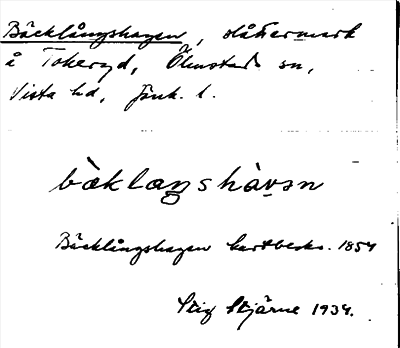 Bäcklångshagen, slåttermark
å Tokeryd, Ölmstads sn,
Vista hd, Jönk. l.
bæklaŋshàvən
Bäcklångshagen kartbeskr. 1854
Stig Stjärne 1934.